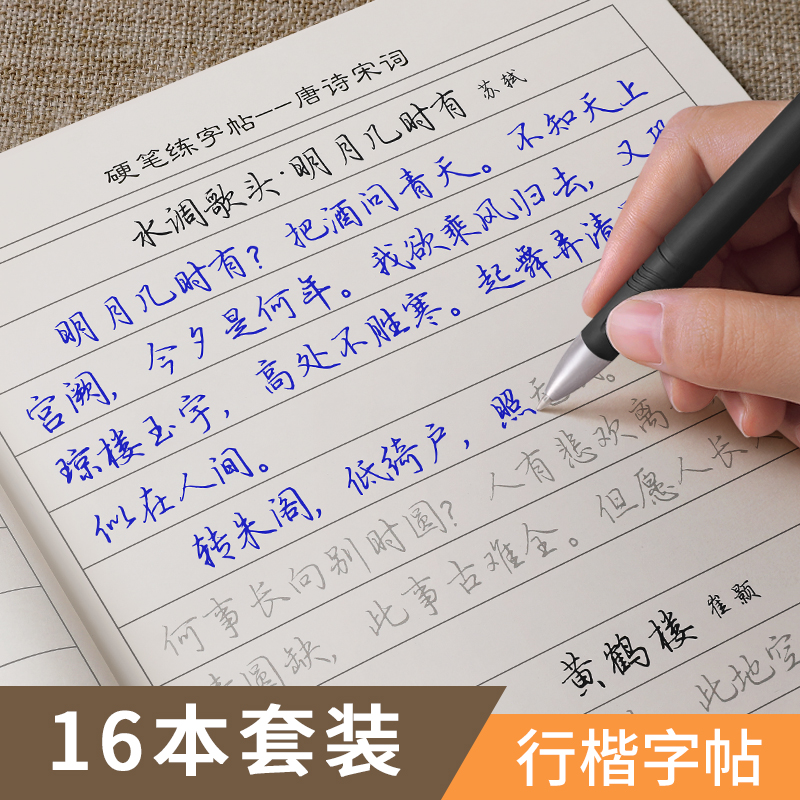 硬笔练字帖--唐诗宋词
水调歌头·明月几时有 苏轼
明月几时有？把酒问青天。不知天上
宫阙，今夕是何年。我欲乘风归去，又恐
琼楼玉宇，高处不胜寒。起舞弄清
似在人间。
转朱阁，低绮户，照无
何事长向别时圆？人有悲欢离
圆缺，此事古难全。但愿人长
黄鹤楼 崔颢
此地空
16本套装
行楷字帖